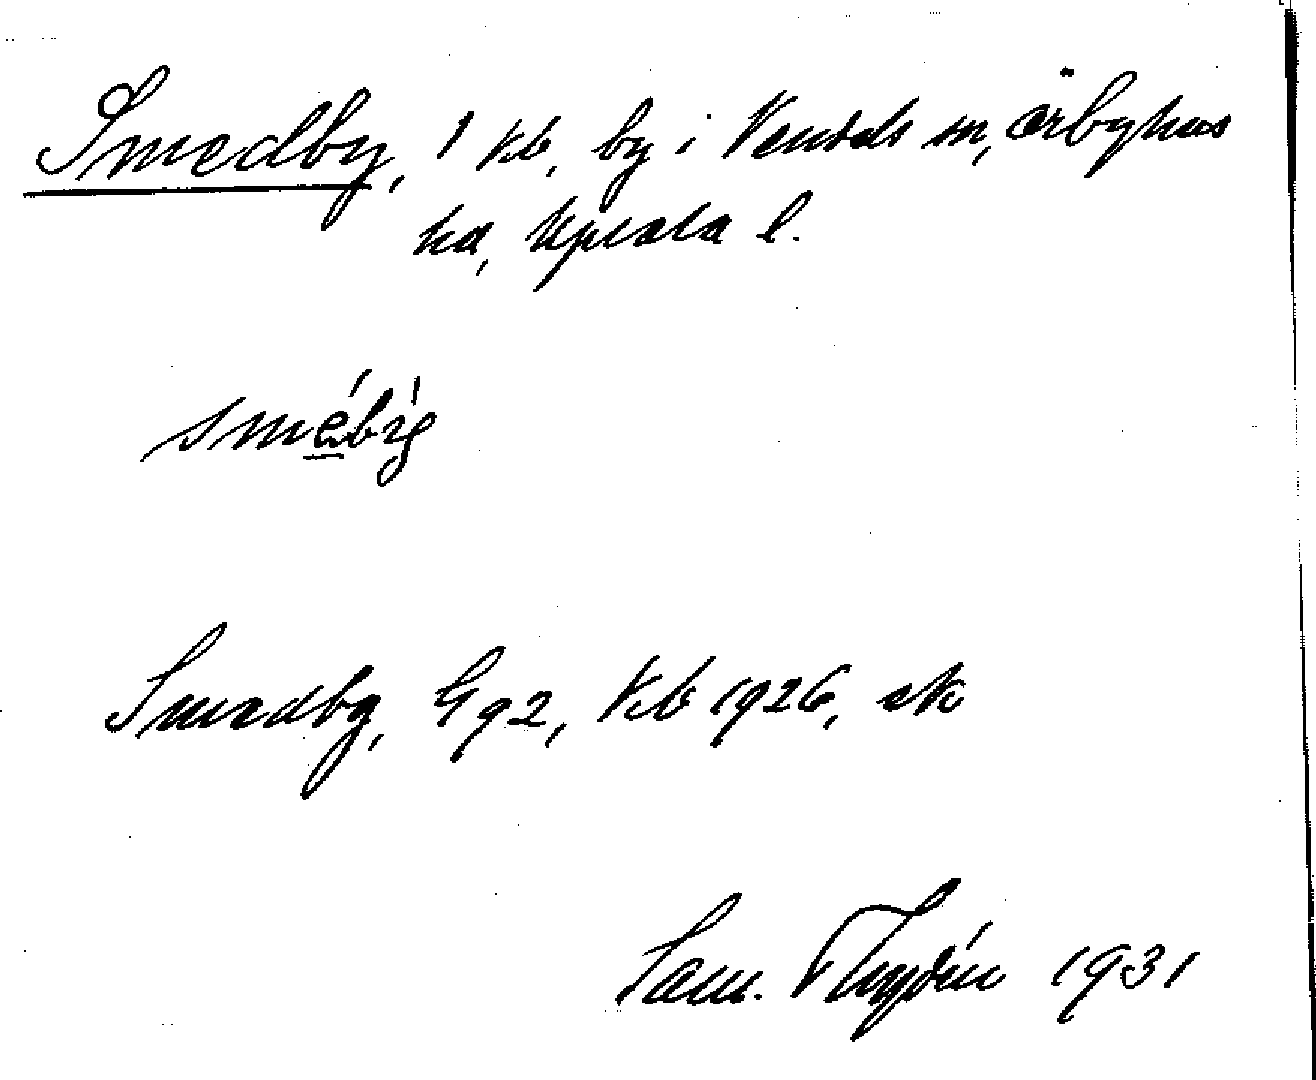 Smedby, 1 kb, by i Vendels sn, Örbyhus
hd, Upsala l.
smébýg
Smedby, Gg2, Kb 1926, ek
Sam. 1931